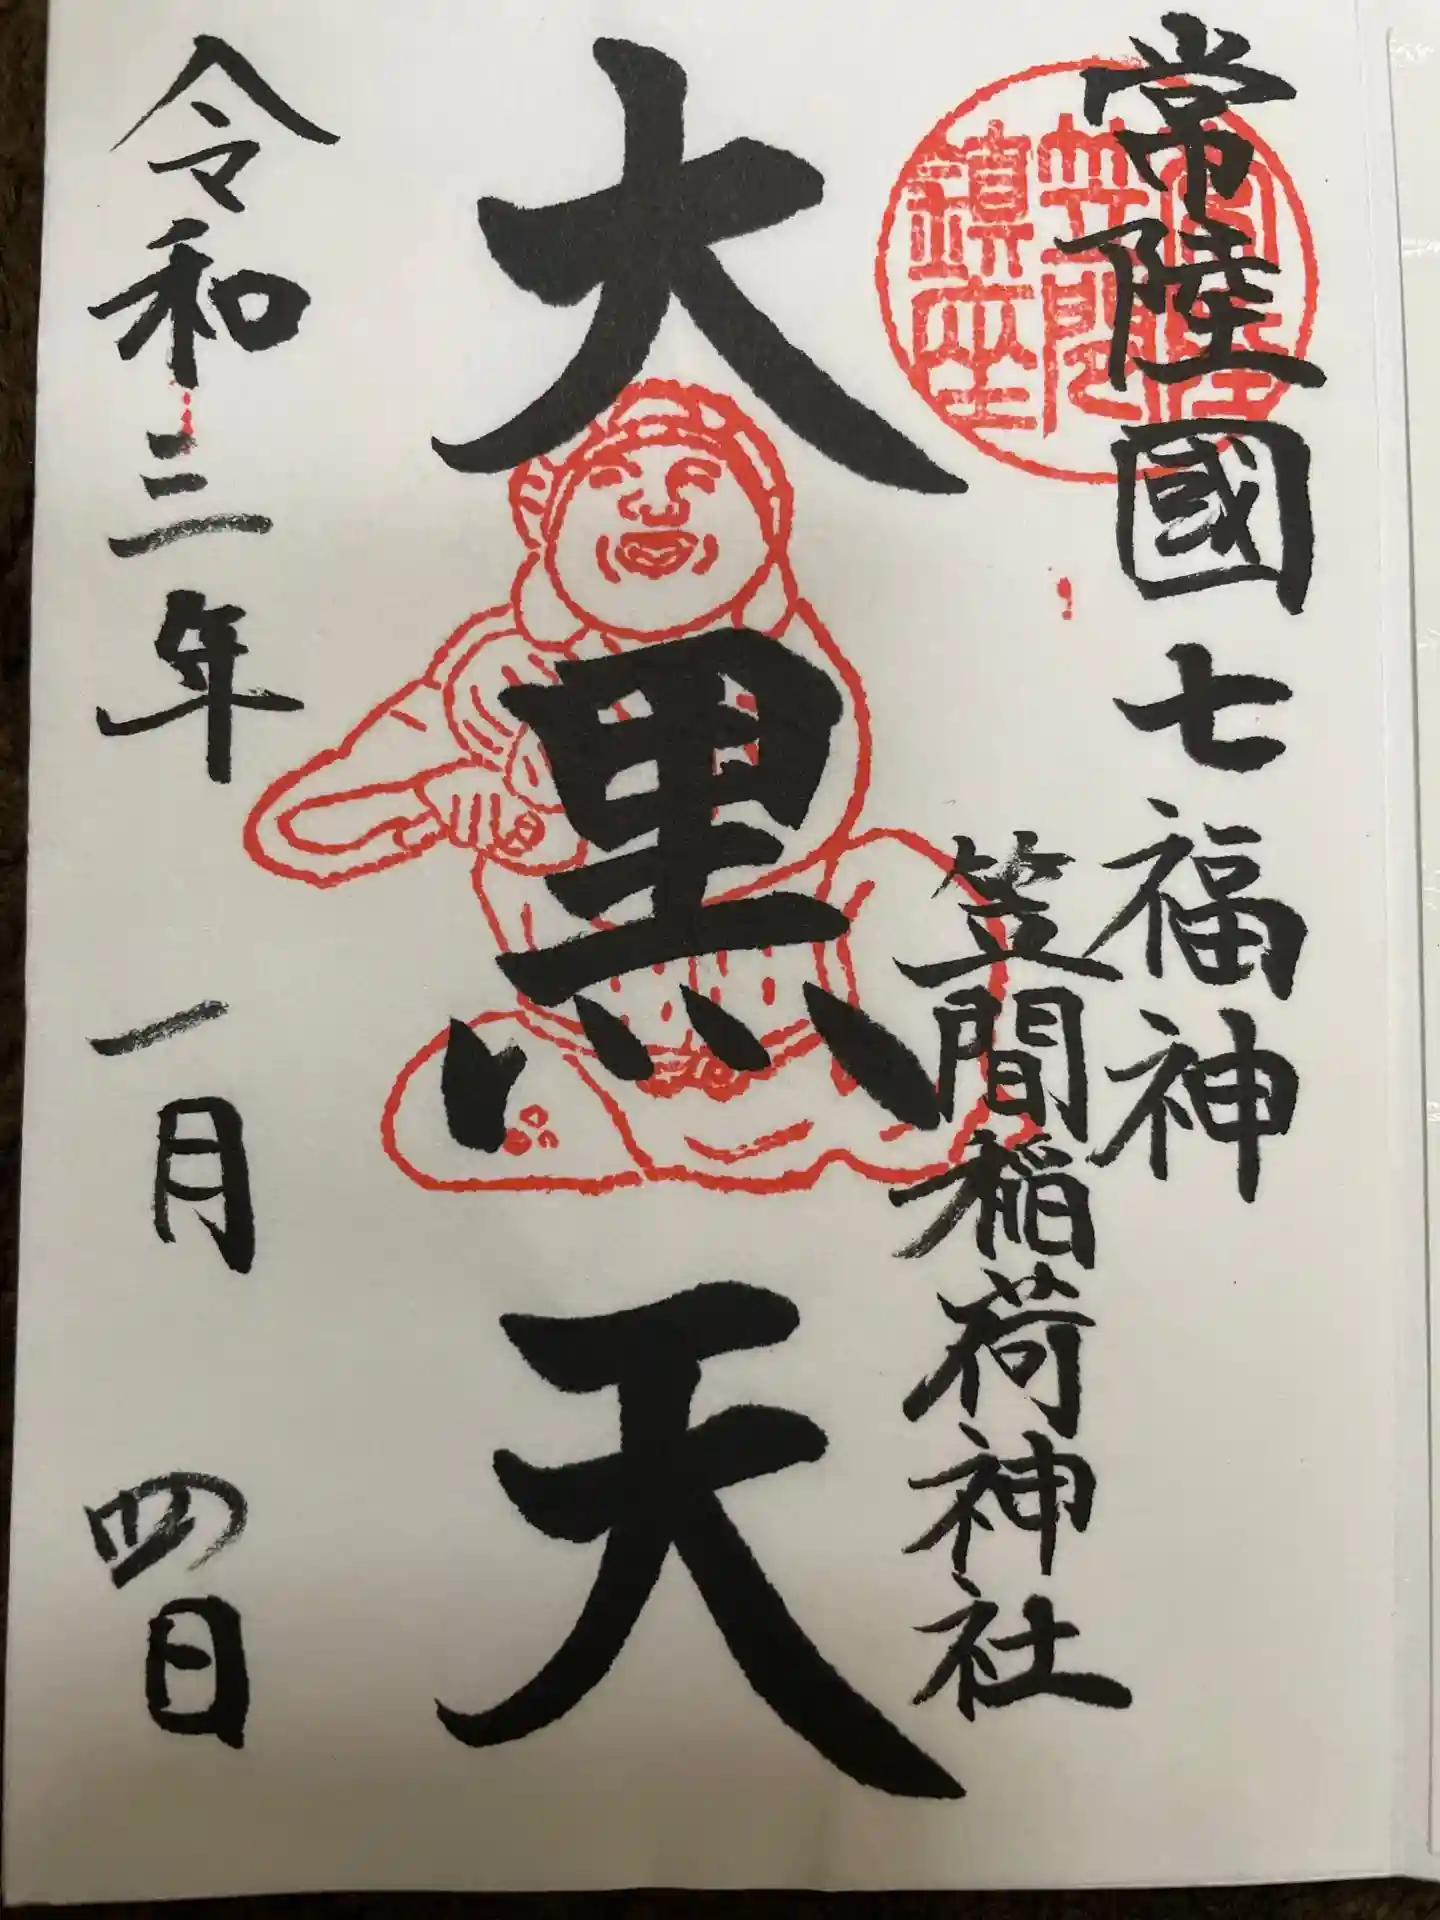 常陸國七福神
笠間稲荷神社
大黒天
令和三年 一月 四日
笠間
鎮座